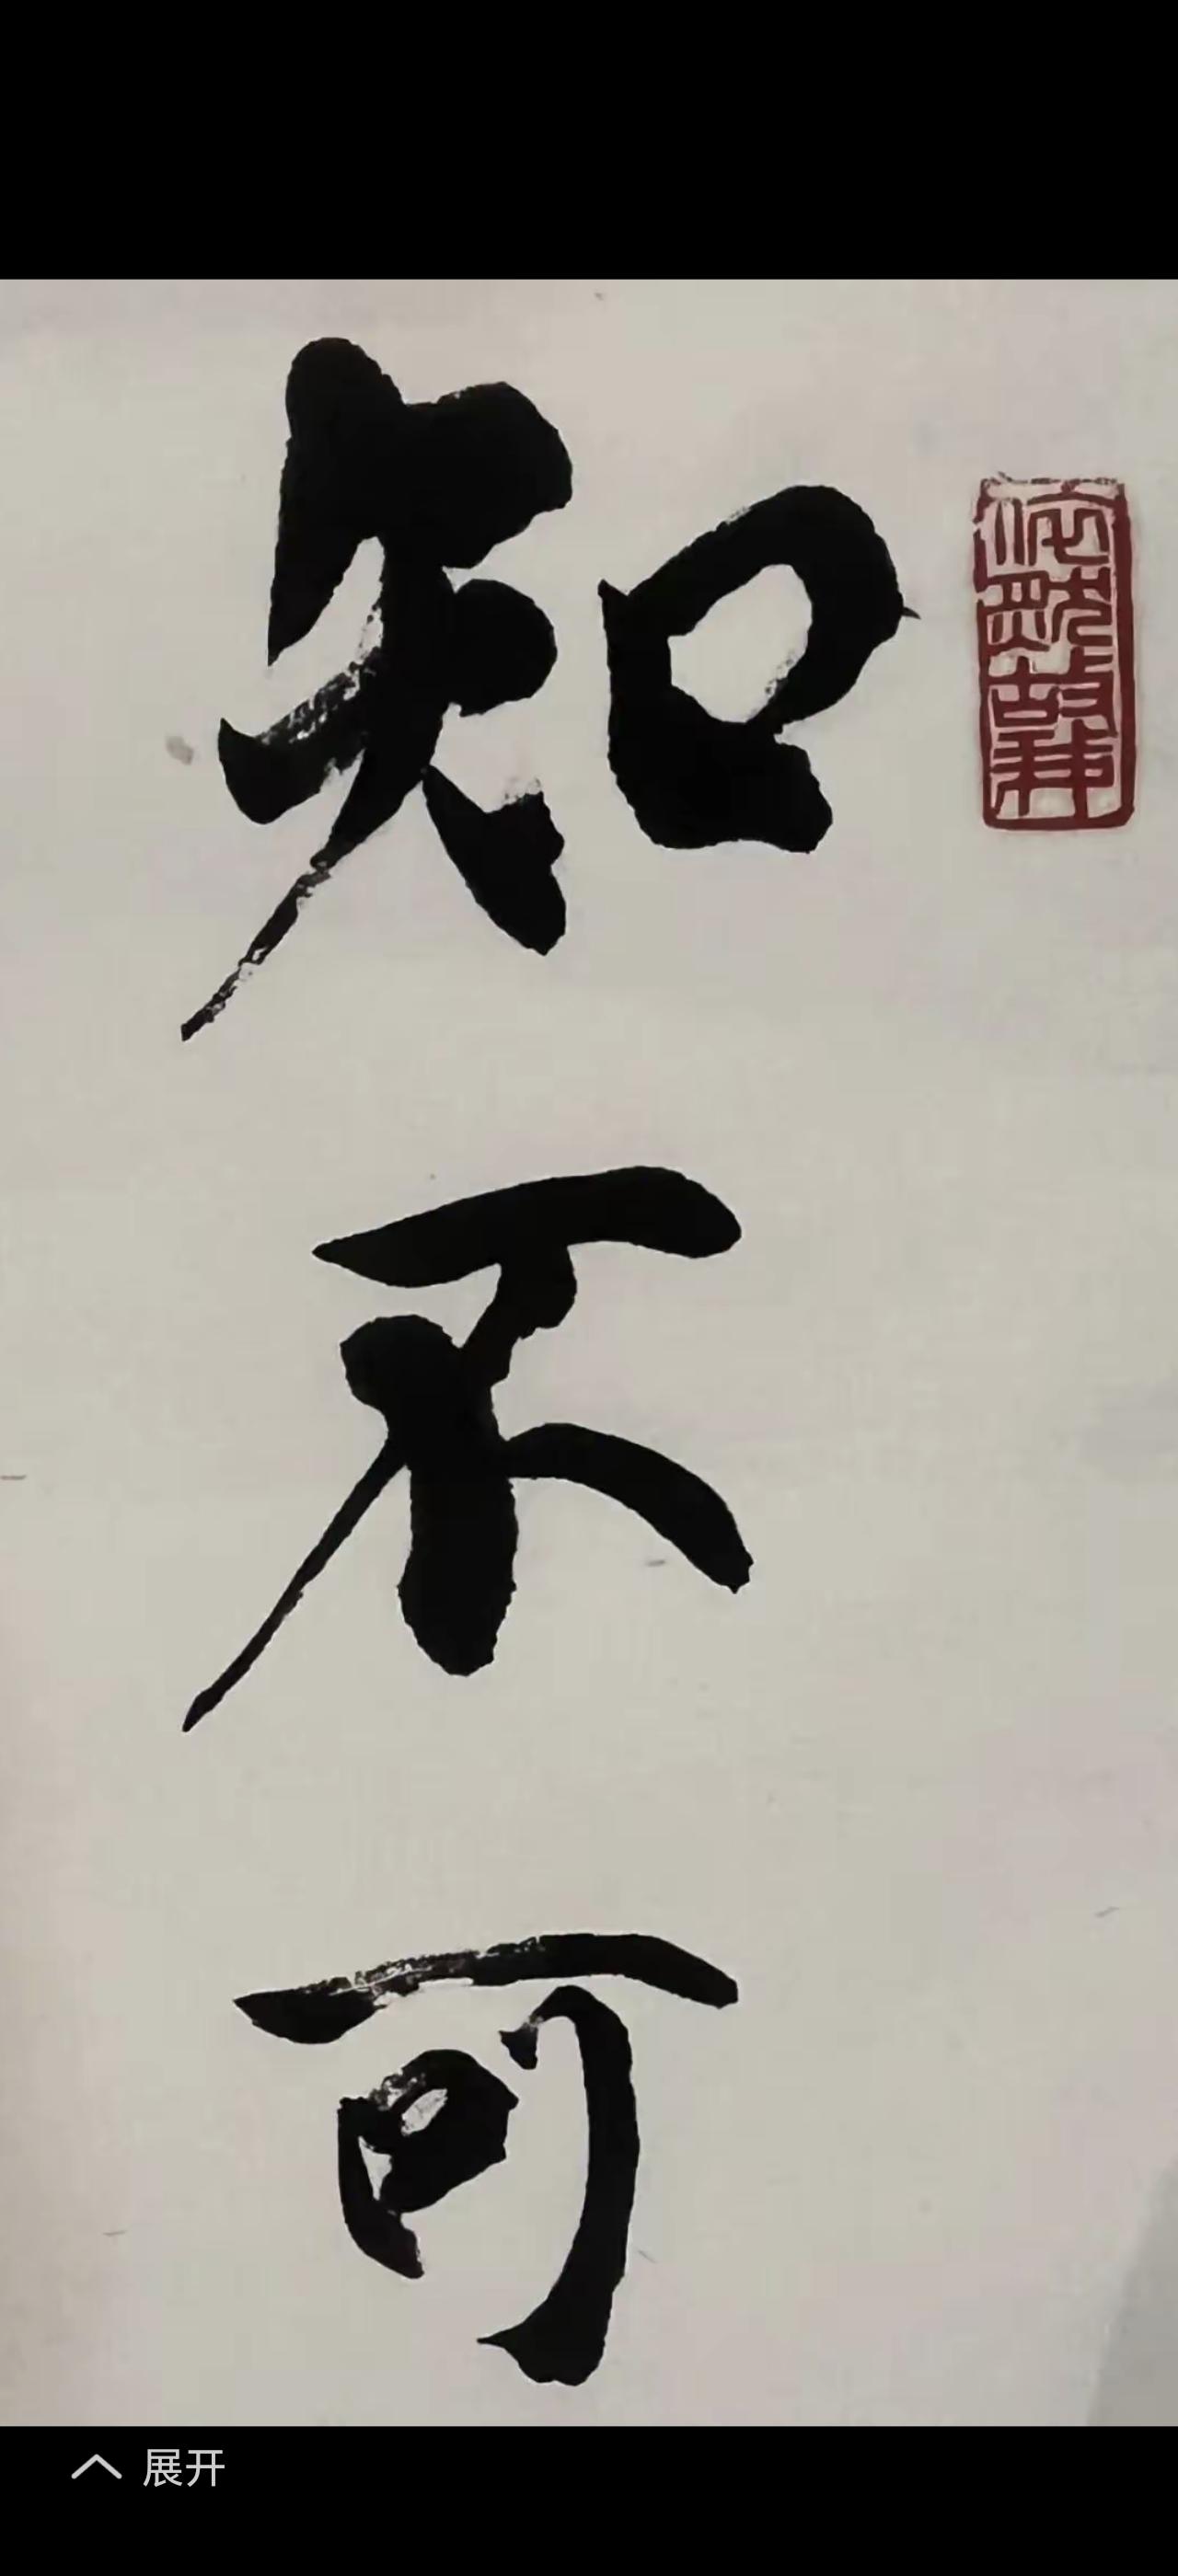 知不可
展开